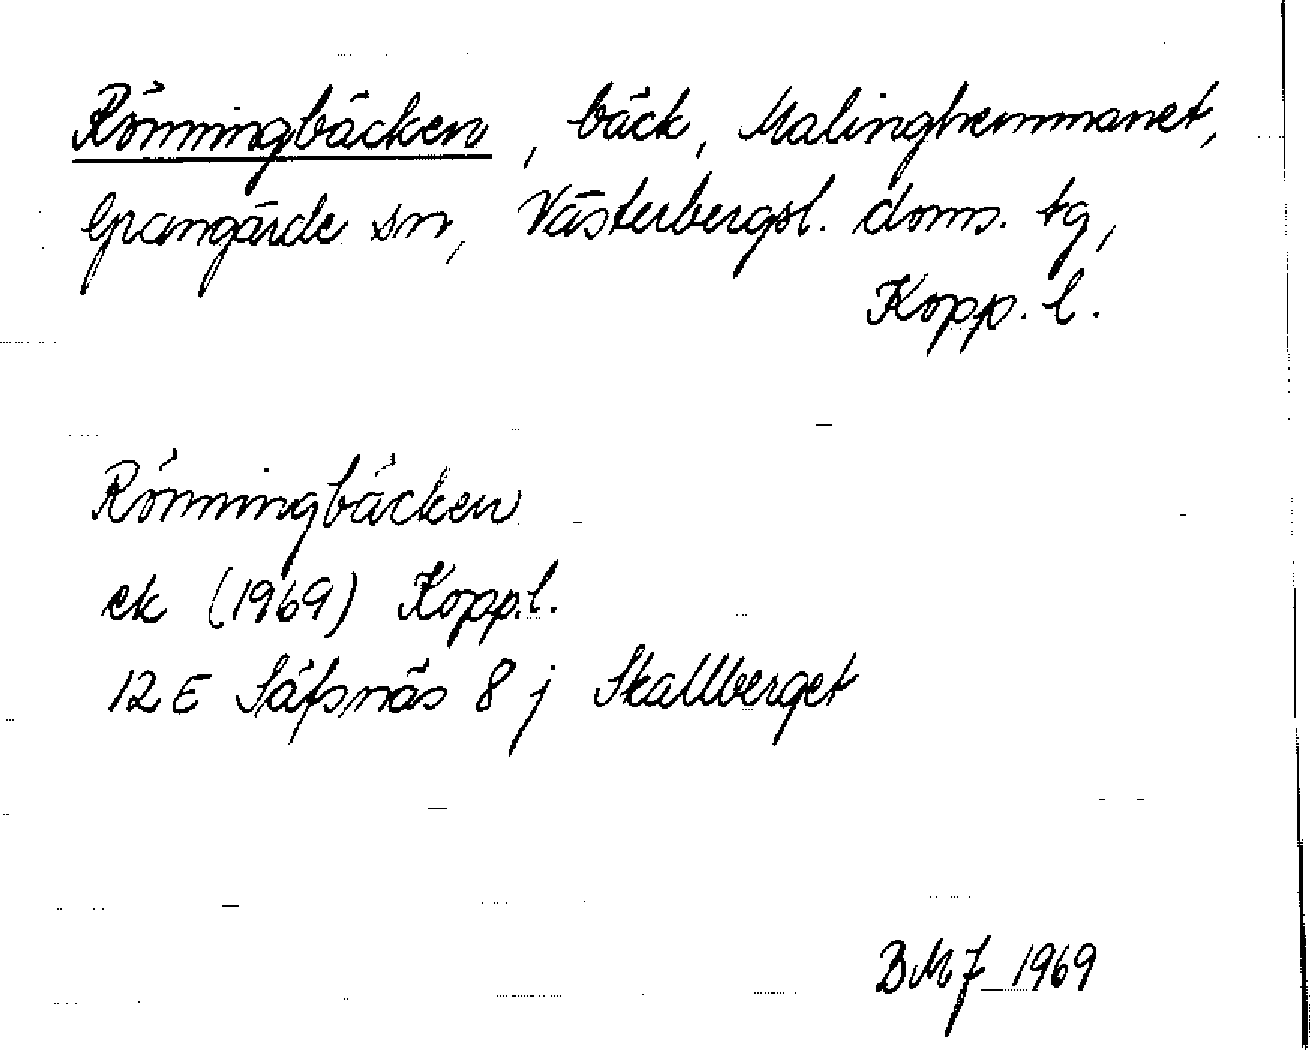 Rönningbäcken, bäck, Malinghemmanet,
Grangärde sn, Västerbergsl. doms. tg,
Kopp. l.
Rönningbäcken
ek (1969) Kopp.l.
12E Säfsnäs 8 j Skallberget
BMJ 1969